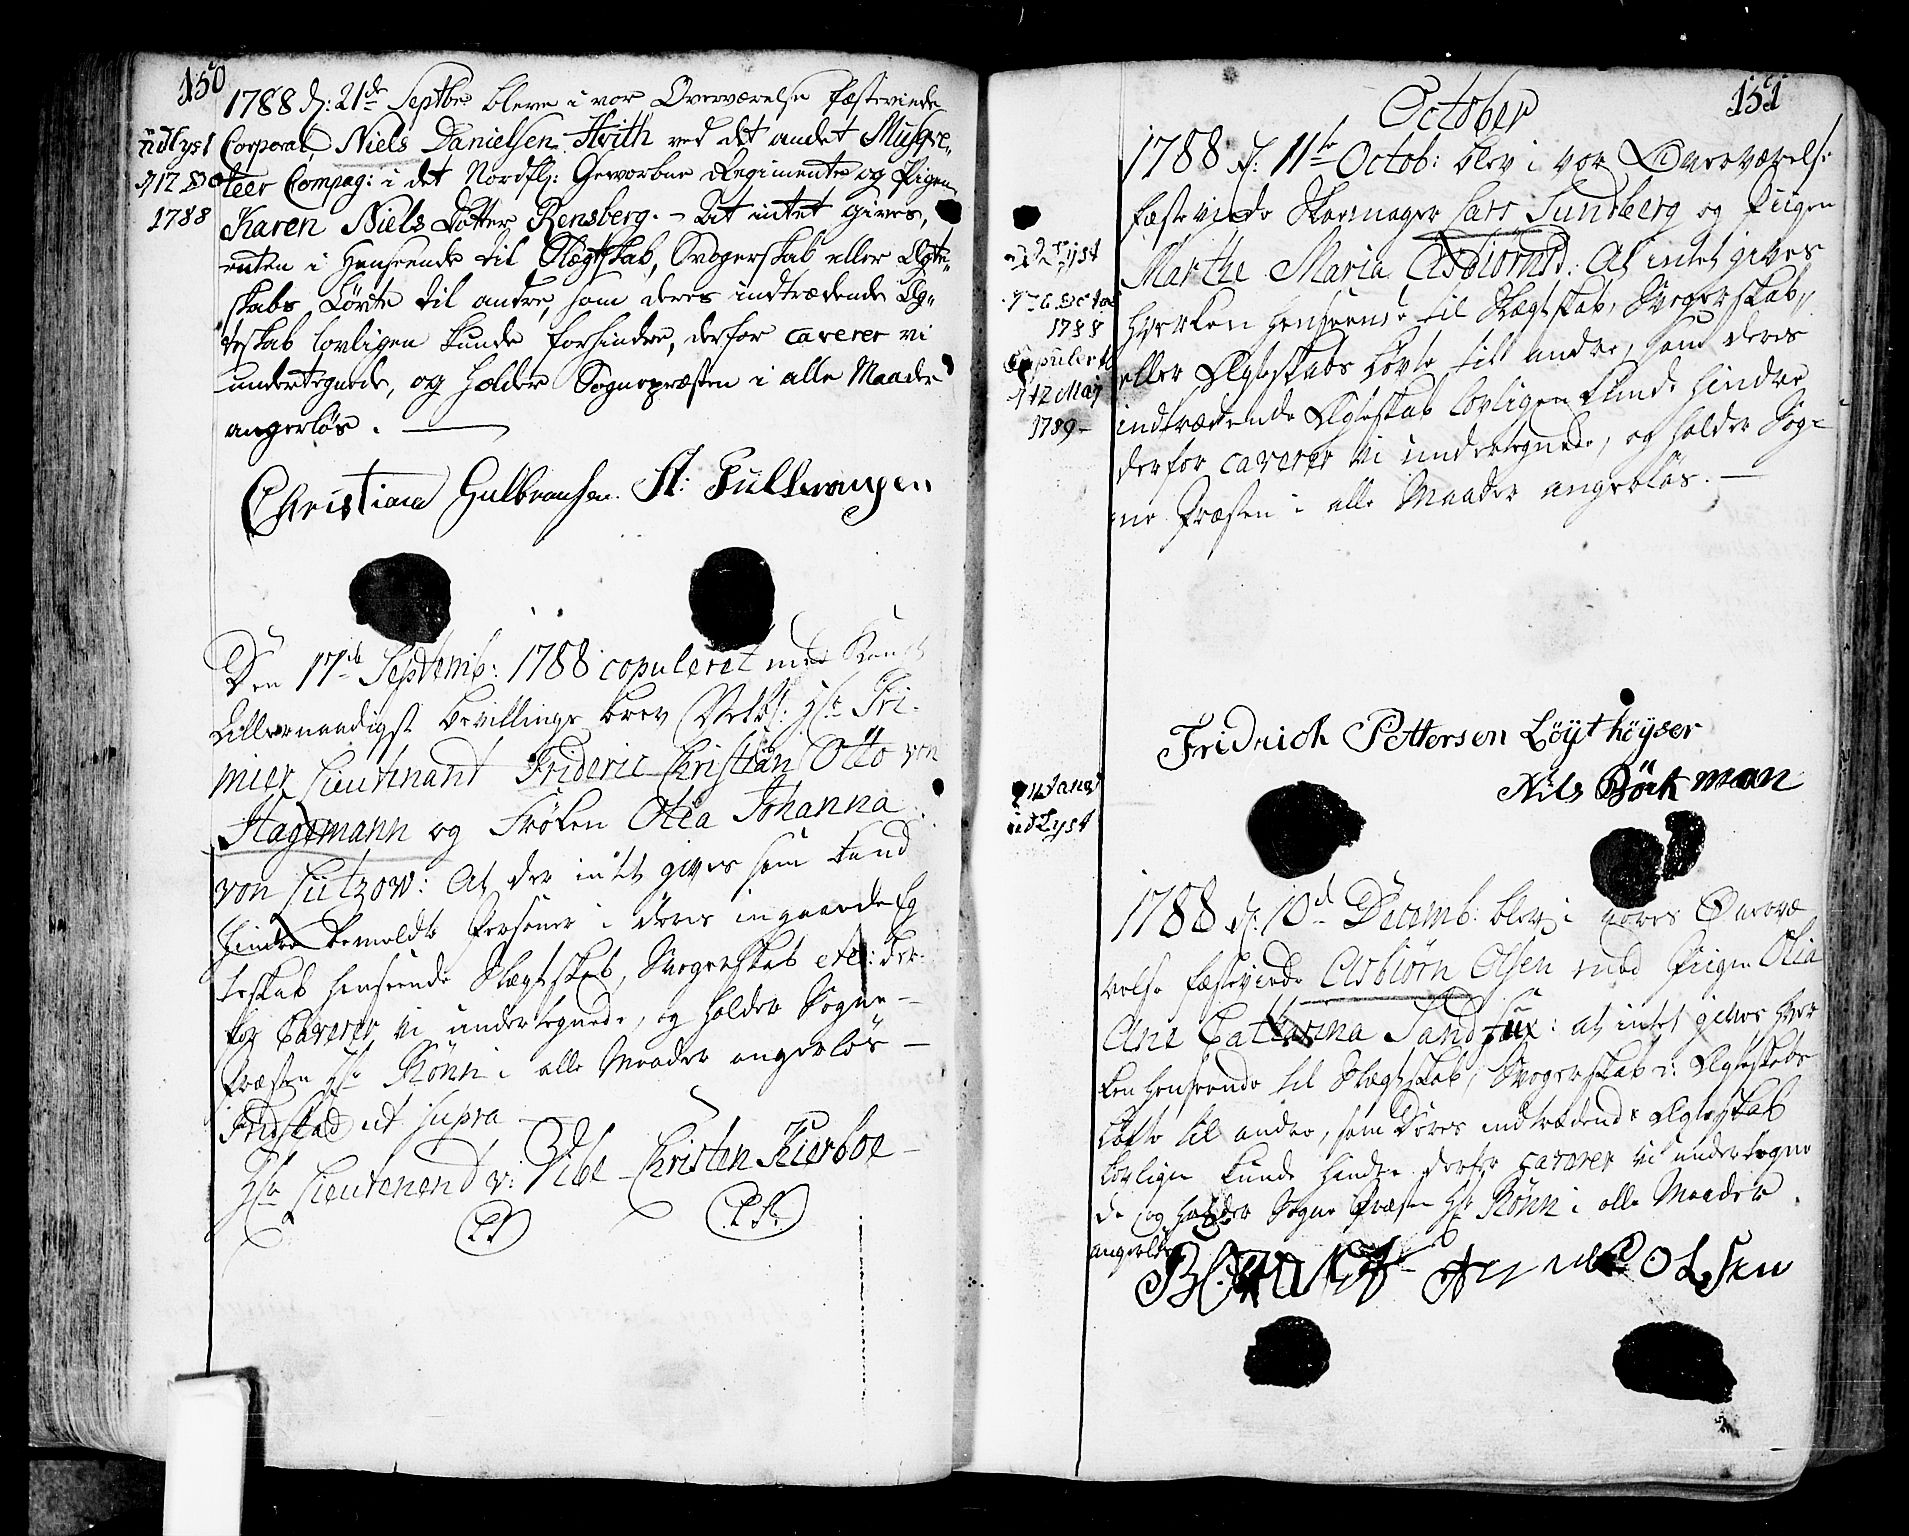 150
1788 d: 21de Septbr bleve i vor Overværelse fæstevinde
udlyst Corporal, Niels Danielsen Hvith ved det andet Musqve-
d 12 Oc teer Compag: i det Nordfls: Geworbne Regimente og Pigen
1788 Karen Niels Dotter Rensberg. - At intet gives,
enten i Henseende til Slægtskab, Svogerskab eller Ægte-
skabs Løvte til andre, som deres indtrædende Æg-
teskab lovligen kunde forhindre, derfor caverer vi
undertegnede, og holder Sognepræsten i alle Maader
angerløs.
Christian Gulbransen. A:
Den 17de Septemb: 1788 copuleret med Kongl
Allernaadigst bevillings brev Velb: Hr Pri-
mier Lieutnant Frideric Christian Otto von
Hagemann og Frøken Otia Johanna
von Lützow: At der intet gives som kand
hindre bemeldte Personer i deres ingaaende Eg
teskab henseende Slægtskab, Svogerskab etc: der-
for caverer vi undertegnede, og holder Sogne-
Præsten Hr Rønn i alle Maader angerløs -
Fridstad ut supra
Hr Lieutenend v: Vibe - Christen Kierboe -
LS LS
151
October
1788 d: 11te Octob: blev i vor Overværelse
fæstevinde Skomager Lars Sundberg og Piigen
udlyst
d 26 Octobr
1788
Copuleret
d 12 May
1789-
Marthe Maria Asbiørnsd: At intet gives
hverken henseende til Slægtskab, Svogerskab,
eller Ægteskabs Løvte till andre, som deres
indtrædende Ægteskab lovligen kunde hindre
derfor caverer vi undertegnede, og holder Sog-
ne Præsten i alle Maader angerløs. -
Fridrich Pettersen Løythøyser
Nils Börkman
udlyst
1788 d: 10de Decemb: blev i vores Overvæ
relse fæstevinde Asbiørn Olsen med Piigen Olia
Ane Catharina Sandfux: at intet gives hver
ken henseende til Slægtskab, Svogerskab i Ægteskabs
Løvte til andre, som Deres indtrædende Ægteskab
lovligen kunde hindre derfor caverer vi undertegne
de og holder Sogne Præsten Hr Rønn i alle Maader
angerløs
OLsen